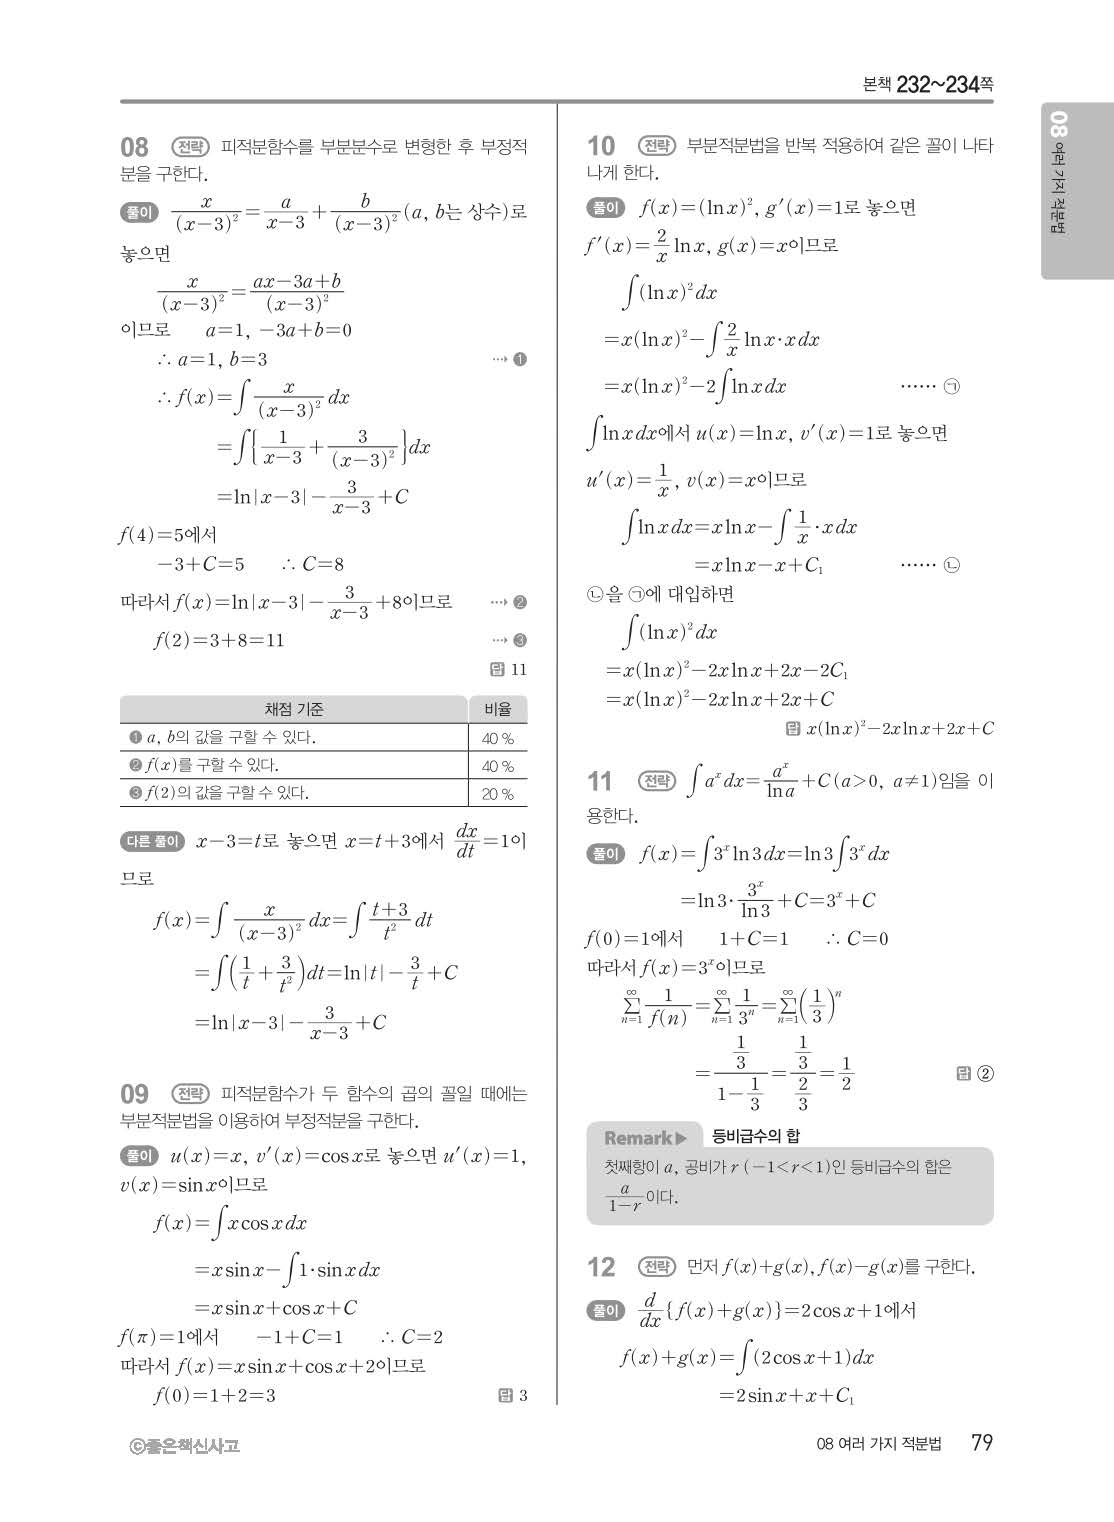 본책 232~234쪽
08 여러 가지 적분법
08 전략 피적분함수를 부분분수로 변형한 후 부정적
분을 구한다.
풀이 x/(x-3)²=a/(x-3)+b/(x-3)² (a, b는 상수)로
놓으면
x/(x-3)²=(ax-3a+b)/(x-3)²
이므로 a=1, -3a+b=0
∴ a=1, b=3 ⋯→ ❶
∴ f(x)=∫ x/(x-3)² dx
=∫{1/(x-3)+3/(x-3)²}dx
=ln|x-3|-3/(x-3)+C
f(4)=5에서
-3+C=5 ∴ C=8
따라서 f(x)=ln|x-3|-3/(x-3)+8이므로 ⋯→ ❷
f(2)=3+8=11 ⋯→ ❸
답 11
채점 기준 비율
❶ a, b의 값을 구할 수 있다. 40 %
❷ f(x)를 구할 수 있다. 40 %
❸ f(2)의 값을 구할 수 있다. 20 %
다른 풀이 x-3=t로 놓으면 x=t+3에서 dx/dt=1이
므로
f(x)=∫ x/(x-3)² dx=∫ (t+3)/t² dt
=∫(1/t+3/t²)dt=ln|t|-3/t+C
=ln|x-3|-3/(x-3)+C
09 전략 피적분함수가 두 함수의 곱의 꼴일 때에는
부분적분법을 이용하여 부정적분을 구한다.
풀이 u(x)=x, v′(x)=cos x로 놓으면 u′(x)=1,
v(x)=sin x이므로
f(x)=∫x cos x dx
=x sin x-∫1·sin x dx
=x sin x+cos x+C
f(π)=1에서 -1+C=1 ∴ C=2
따라서 f(x)=x sin x+cos x+2이므로
f(0)=1+2=3 답 3
10 전략 부분적분법을 반복 적용하여 같은 꼴이 나타
나게 한다.
풀이 f(x)=(ln x)², g′(x)=1로 놓으면
f′(x)=2/x ln x, g(x)=x이므로
∫(ln x)²dx
=x(ln x)²-∫2/x ln x·x dx
=x(ln x)²-2∫ln x dx ⋯⋯ ㉠
∫ln x dx에서 u(x)=ln x, v′(x)=1로 놓으면
u′(x)=1/x, v(x)=x이므로
∫ln x dx=x ln x-∫1/x·x dx
=x ln x-x+C₁ ⋯⋯ ㉡
㉡을 ㉠에 대입하면
∫(ln x)²dx
=x(ln x)²-2x ln x+2x-2C₁
=x(ln x)²-2x ln x+2x+C
답 x(ln x)²-2x ln x+2x+C
11 전략 ∫aˣ dx=aˣ/ln a+C(a>0, a≠1)임을 이
용한다.
풀이 f(x)=∫3ˣ ln 3 dx=ln 3∫3ˣ dx
=ln 3·3ˣ/ln 3+C=3ˣ+C
f(0)=1에서 1+C=1 ∴ C=0
따라서 f(x)=3ˣ이므로
∑_{n=1}^{∞} 1/f(n)=∑_{n=1}^{∞} 1/3ⁿ=∑_{n=1}^{∞}(1/3)ⁿ
=(1/3)/(1-1/3)=(1/3)/(2/3)=1/2 답 ②
Remark▶ 등비급수의 합
첫째항이 a, 공비가 r (-1<r<1)인 등비급수의 합은
a/(1-r)이다.
12 전략 먼저 f(x)+g(x), f(x)-g(x)를 구한다.
풀이 d/dx{f(x)+g(x)}=2cos x+1에서
f(x)+g(x)=∫(2cos x+1)dx
=2sin x+x+C₁
ⓒ좋은책신사고
08 여러 가지 적분법 79